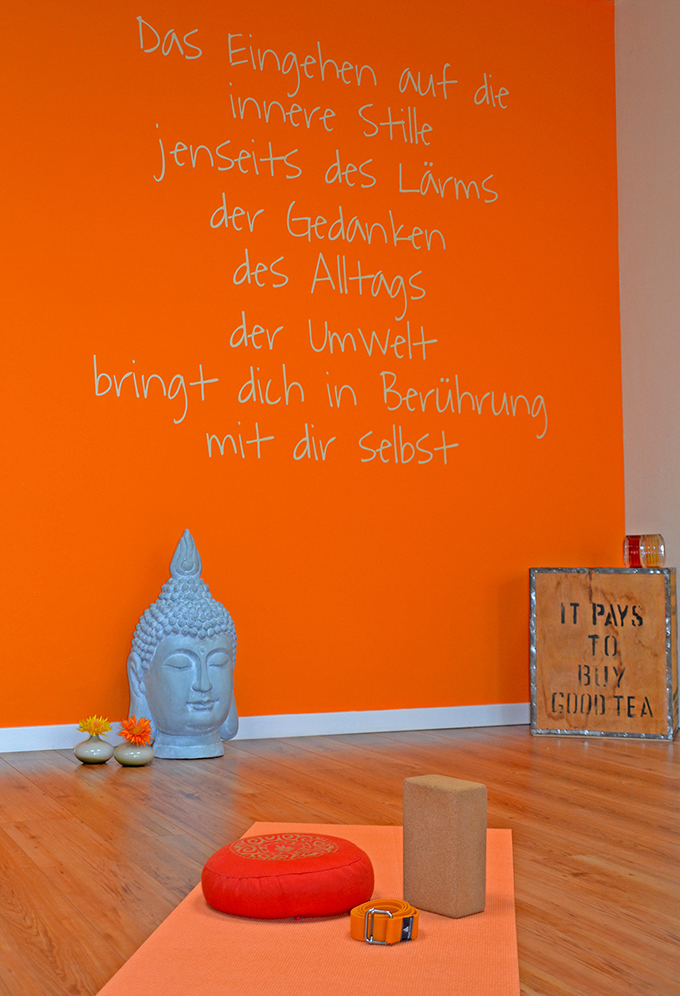 Das Eingehen auf die
innere Stille
jenseits des Lärms
der Gedanken
des Alltags
der Umwelt
bringt dich in Berührung
mit dir selbst
IT PAYS
TO
BUY
GOOD TEA